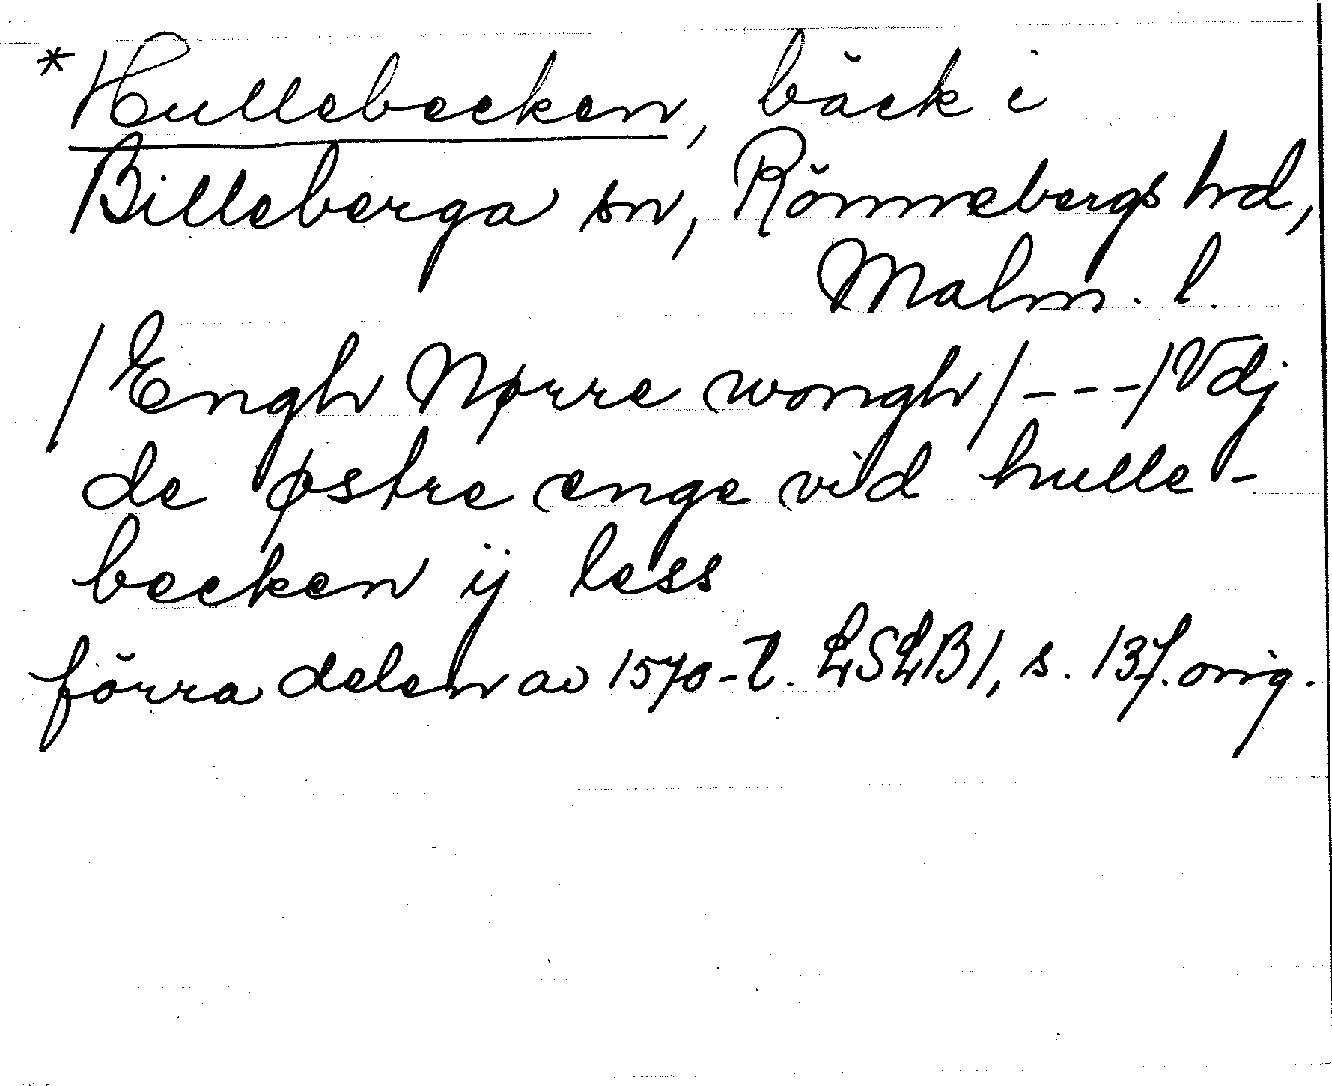 *Hullebecken, bäck i
Billeberga sn, Rönnebergs hd,
Malm. l.
/Engh Nørre wongh/---/Vdj
de østre enge vid hulle-
becken ij less
förra delen av 1570-t. LSLB1, s. 137. orig.